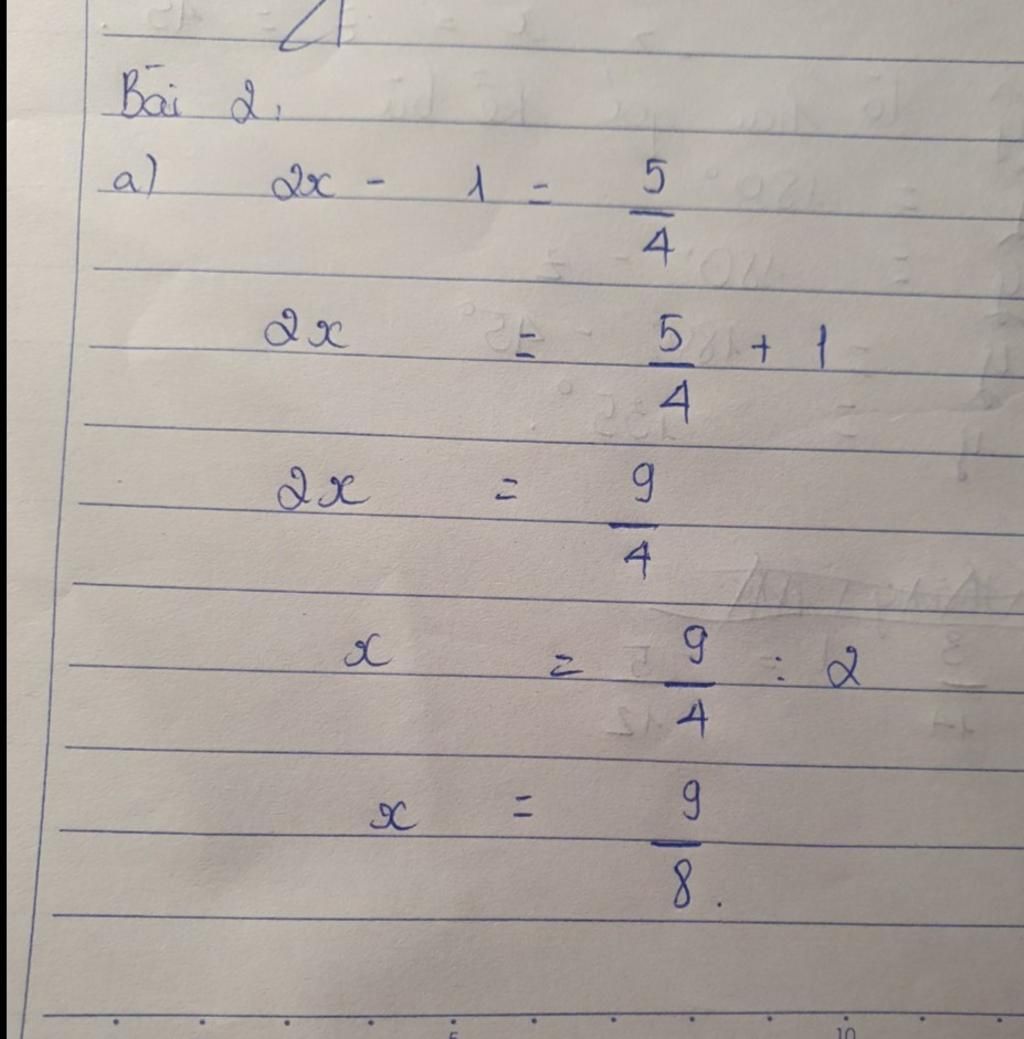 Bài 2.
a) 2x - 1 = 5/4
2x = 5/4 + 1
2x = 9/4
x = 9/4 : 2
x = 9/8.
5 10